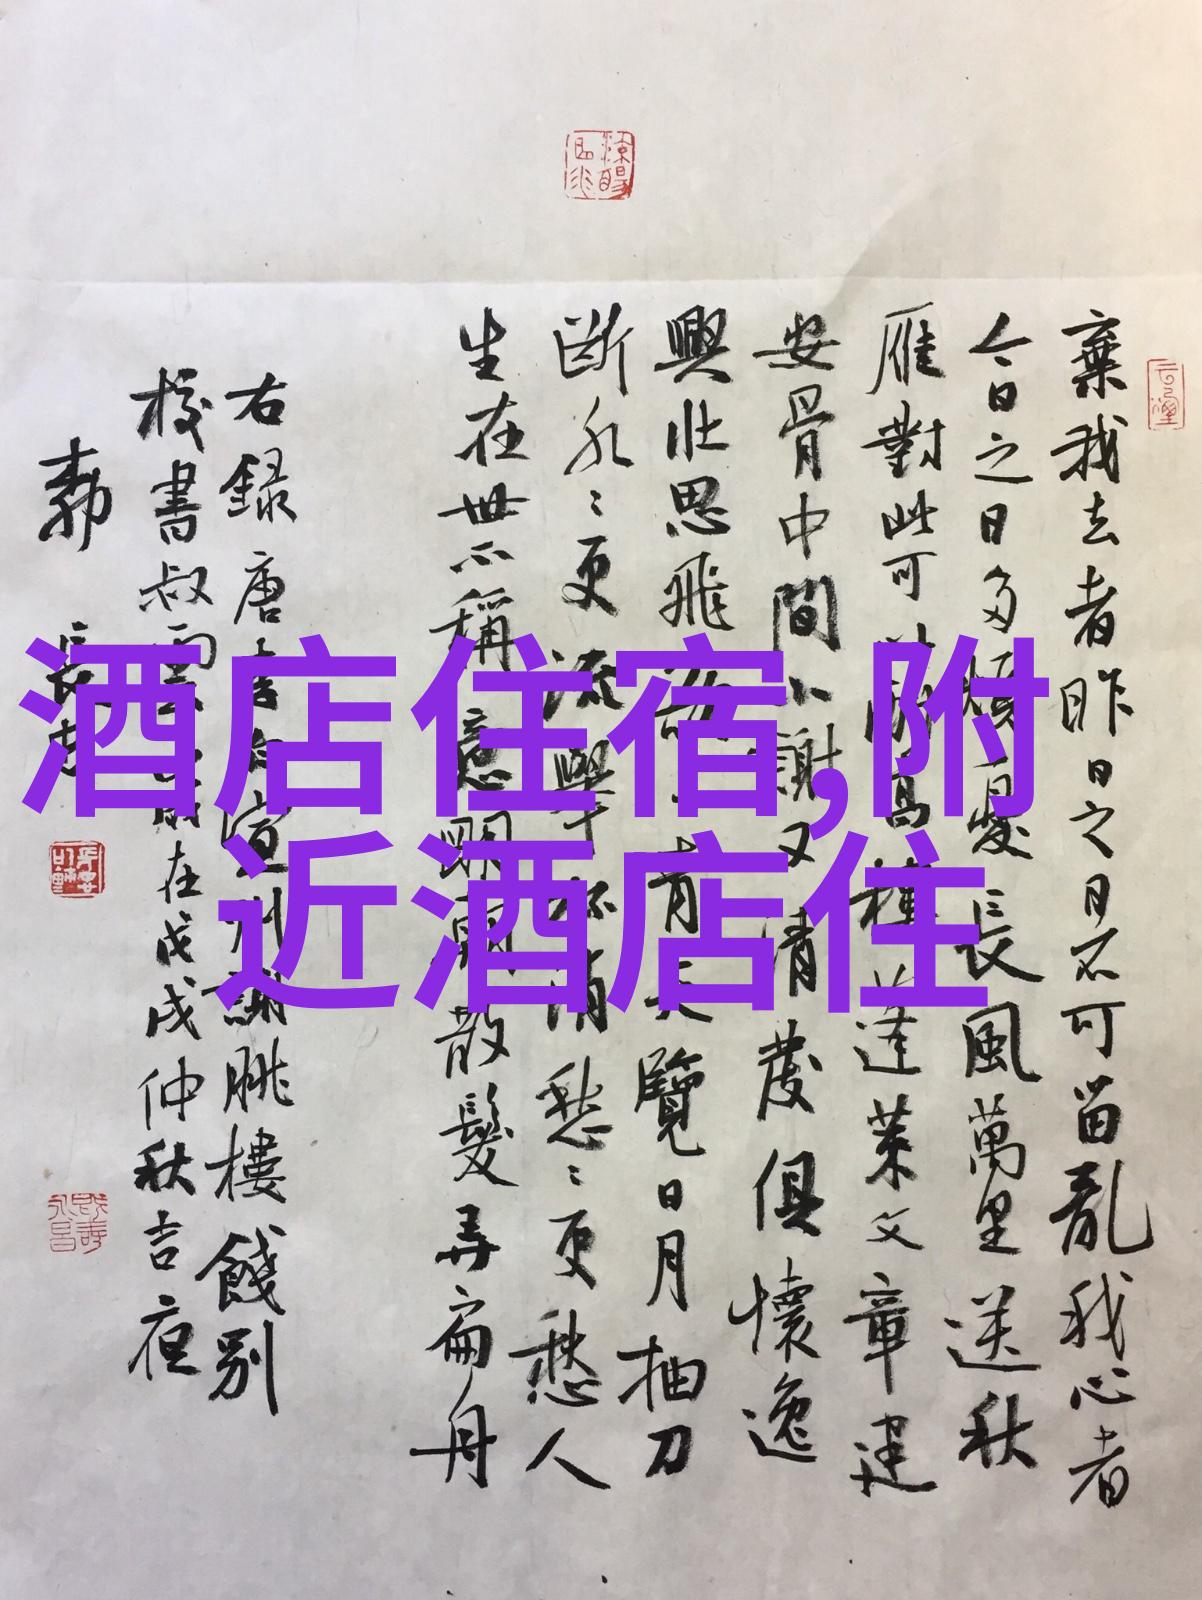 棄我去者昨日之日不可留亂我心者
今日之日多煩憂長風萬里送秋
雁對此可以酣高樓蓬萊文章建
安骨中間小謝又清發俱懷逸
興壯思飛欲上青天覽日月抽刀
斷水〻更流舉杯消愁〻更愁人
生在世不稱意明朝散髮弄扁舟
右錄唐李白宣州謝朓樓餞別
校書叔雲 在戊戌仲秋吉夜
酒店住宿,附
近酒店住